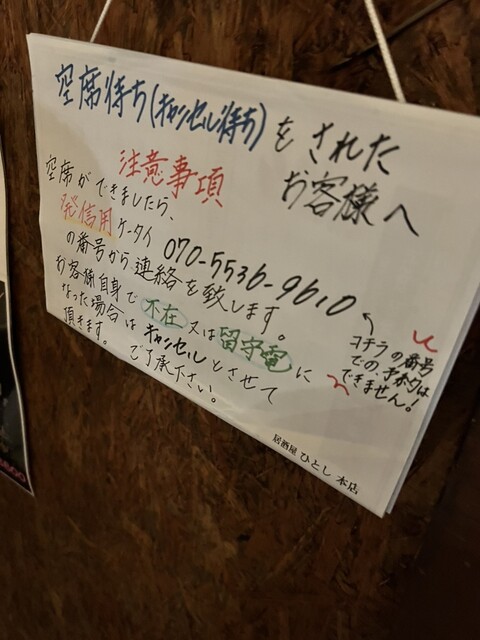 空席待ち(キャンセル待ち)をされた
お客様へ
注意事項
空席ができましたら、
発信用ケータイ 070-5536-9610
の番号から連絡を致します。
お客様自身で不在又は留守電に
なった場合はキャンセルとさせて
頂きます。 ご了承下さい。
コチラの番号
での、予約は
できません!
居酒屋 ひとし 本店